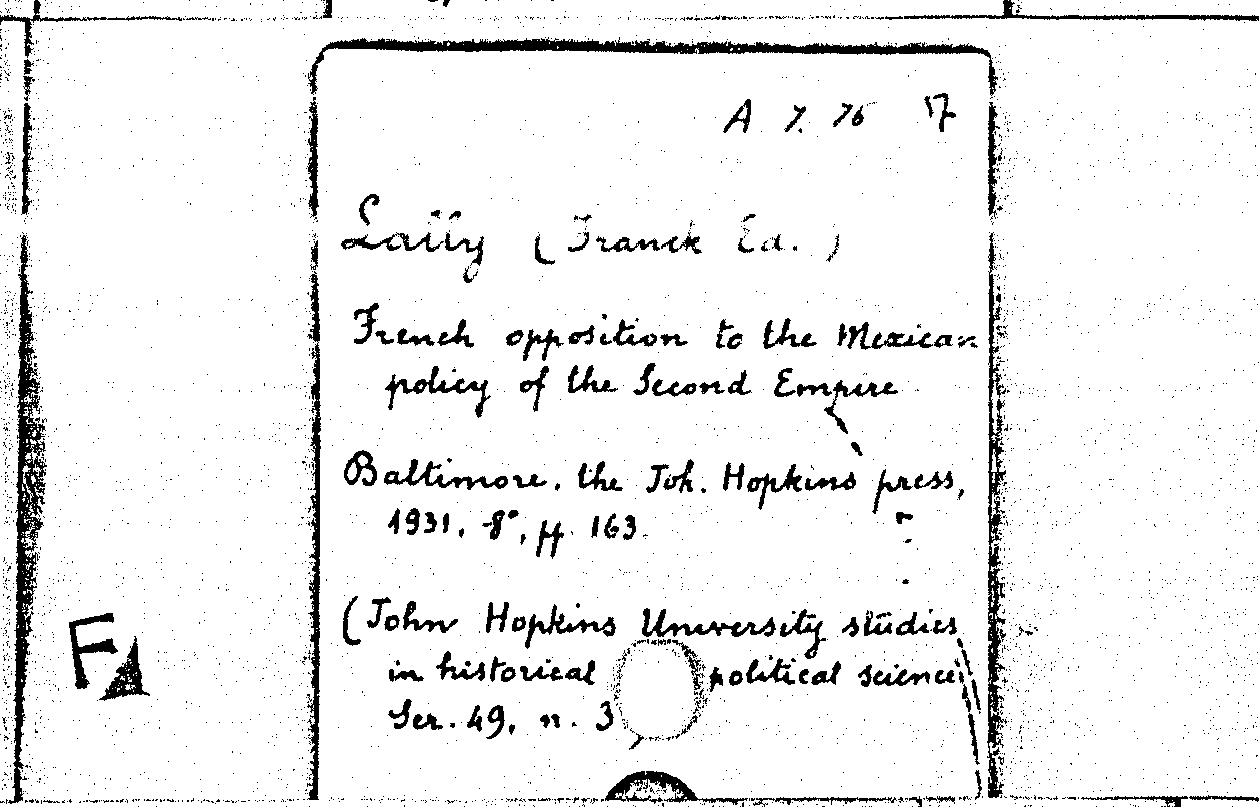 A 7. 76 17
Lally (Franck Ed.)
French opposition to the Mexican
policy of the Second Empire
Baltimore. the Joh. Hopkins press,
1931. -8°, pp. 163.
(John Hopkins University studies
in historical political science
Ser. 49, n. 3
F